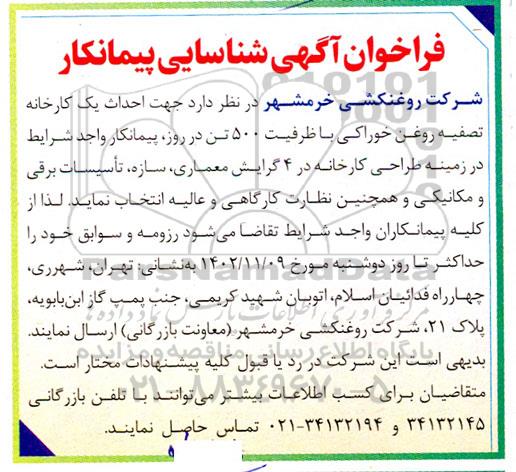 فراخوان آگهی شناسایی پیمانکار
شرکت روغنکشی خرمشهر در نظر دارد جهت احداث یک کارخانه
تصفیه روغن خوراکی با ظرفیت ۵۰۰ تن در روز، پیمانکار واجد شرایط
در زمینه طراحی کارخانه در ۴ گرایش معماری، سازه، تأسیسات برقی
و مکانیکی و همچنین نظارت کارگاهی و عالیه انتخاب نماید. لذا از
کلیه پیمانکاران واجد شرایط تقاضا می‌شود رزومه و سوابق خود را
حداکثر تا روز دوشنبه مورخ ۱۴۰۲/۱۱/۰۹ به‌نشانی: تهران، شهرری،
چهارراه فدائیان اسلام، اتوبان شهید کریمی، جنب پمپ گاز ابن‌بابویه،
پلاک ۲۱، شرکت روغنکشی خرمشهر (معاونت بازرگانی) ارسال نمایند.
بدیهی است این شرکت در رد یا قبول کلیه پیشنهادات مختار است.
متقاضیان برای کسب اطلاعات بیشتر می‌توانند با تلفن بازرگانی
۳۴۱۳۲۱۴۵ و ۳۴۱۳۲۱۹۴-۰۲۱ تماس حاصل نمایند.
ParsNamadData
پایگاه اطلاع رسانی مناقصه و مزایده
۰۲۱-۸۸۳۴۹۶۷۰-۵